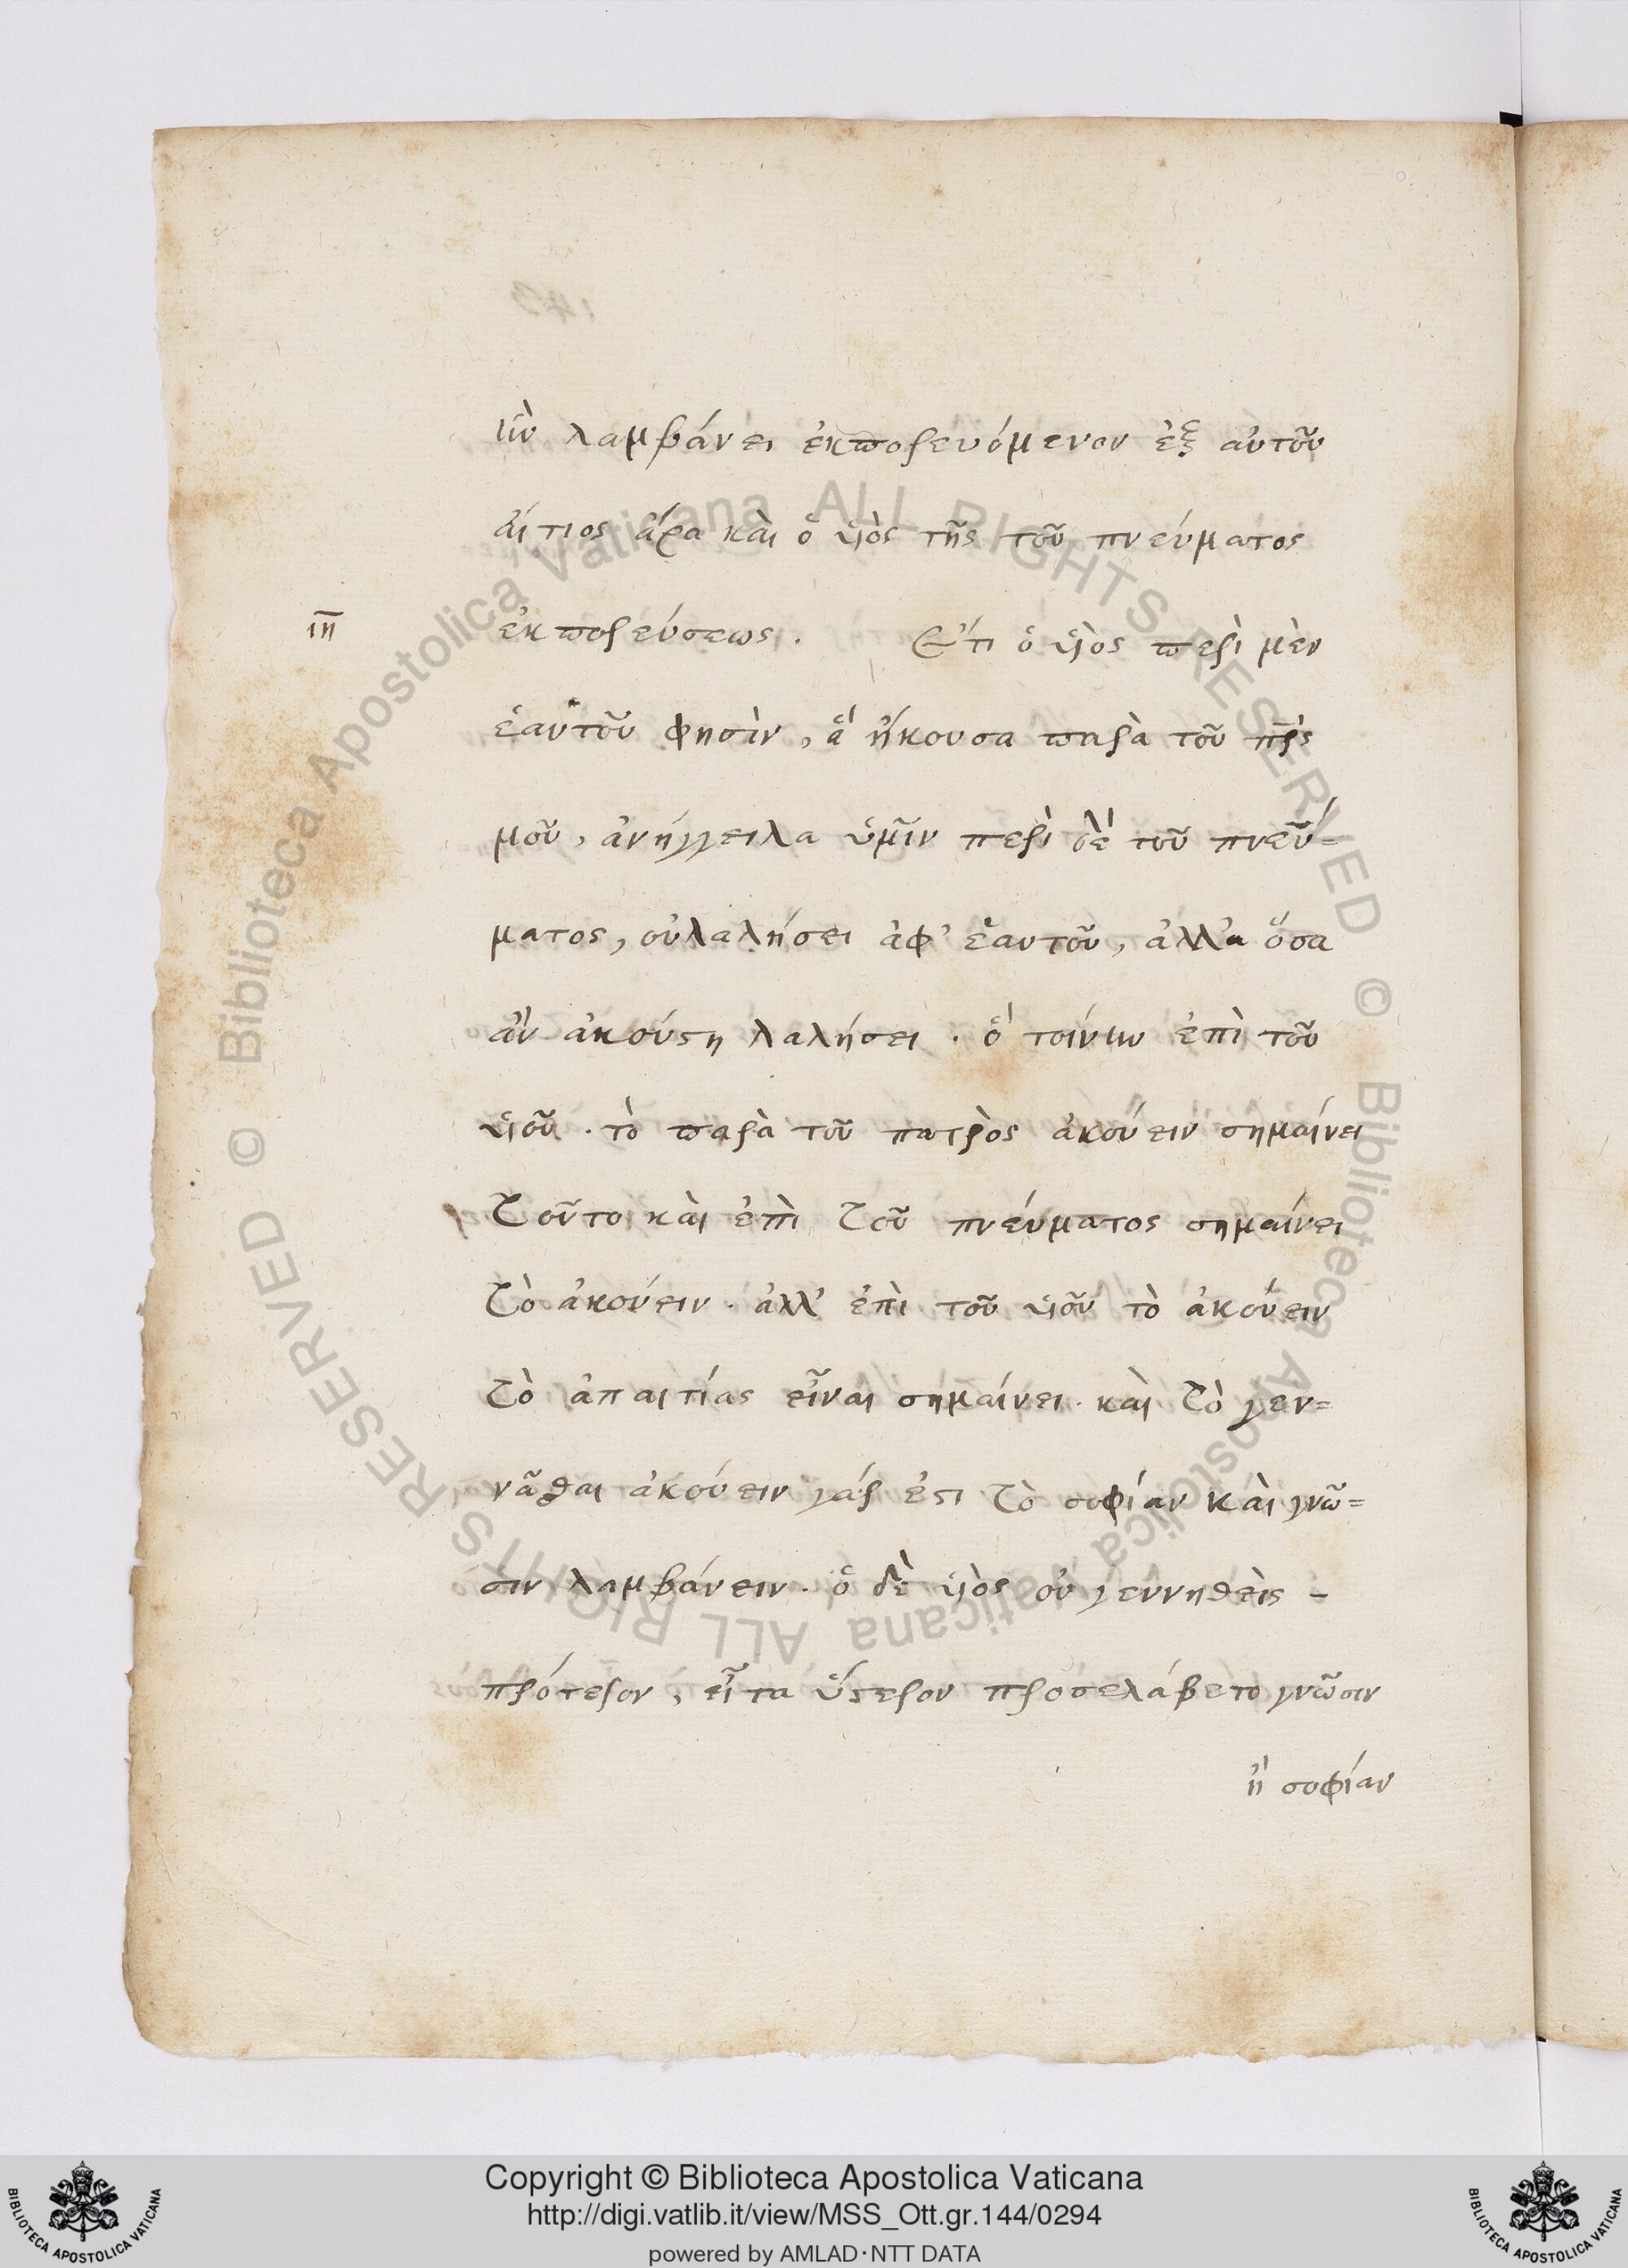 ἣν λαμβάνει ἐκπορευόμενον ἐξ αὐτοῦ
αἴτιος ἄρα καὶ ὁ υἱὸς τῆς τοῦ πνεύματος
ιη ἐκπορεύσεως. Ἔτι ὁ υἱὸς περὶ μὲν
ἑαυτοῦ φησὶν, ἃ ἤκουσα παρὰ τοῦ πρς
μοῦ, ἀνήγγειλα ὑμῖν περὶ δὲ τοῦ πνεύ=
ματος, οὐ λαλήσει ἀφ' ἑαυτοῦ, ἀλλ' ὅσα
ἂν ἀκούση λαλήσει · ὃ τοίνυν ἐπὶ τοῦ
υἱοῦ · τὸ παρὰ τοῦ πατρὸς ἀκούειν σημαίνει
τοῦτο καὶ ἐπὶ τοῦ πνεύματος σημαίνει
τὸ ἀκούειν · ἀλλ' ἐπὶ τοῦ υἱοῦ τὸ ἀκούειν
τὸ ἀπαιτίας εἶναι σημαίνει · καὶ τὸ γεν=
νᾶσθαι ἀκούειν γάρ ἐστι τὸ σοφίαν καὶ γνῶ=
σιν λαμβάνειν · ὁ δὲ υἱὸς οὐ γεννηθεὶς -
πρότερον, εἶτα ὕστερον προσελάβετο γνῶσιν
ἢ σοφίαν
© Biblioteca Apostolica Vaticana ALL RIGHTS RESERVED © Biblioteca Apostolica Vaticana ALL RIGHTS RESERVED
Copyright © Biblioteca Apostolica Vaticana
http://digi.vatlib.it/view/MSS_Ott.gr.144/0294
powered by AMLAD·NTT DATA
BIBLIOTECA APOSTOLICA VATICANA
BIBLIOTECA APOSTOLICA VATICANA